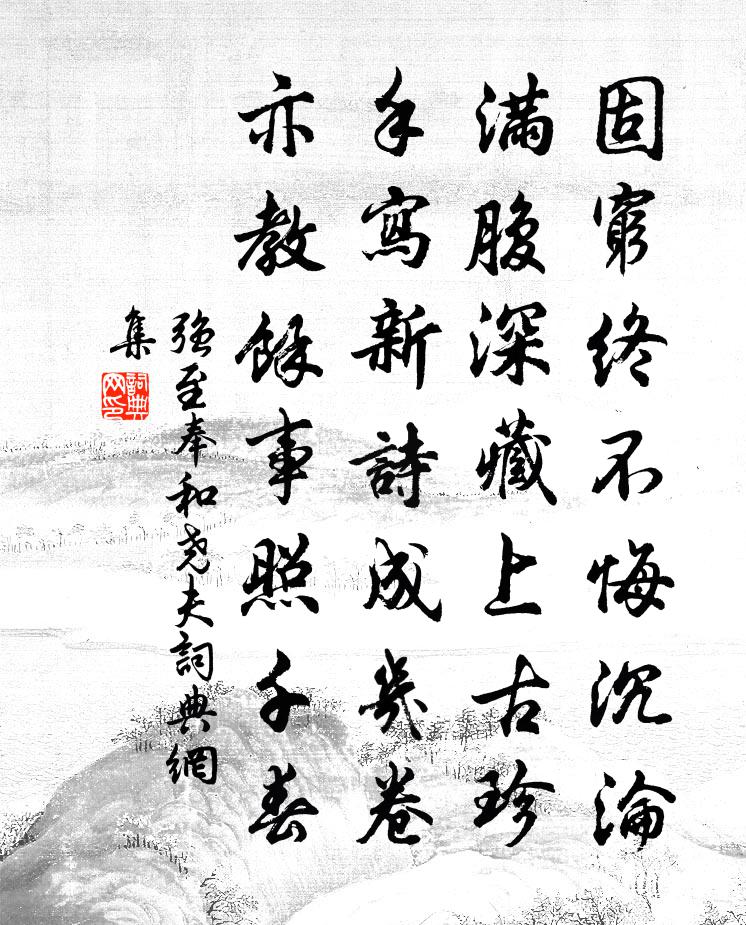 固窮終不悔沉淪
滿腹深藏上古珍
手寫新詩成幾卷
亦教餘事照千春
強至奉和堯夫詞典網
集
詞典
網印